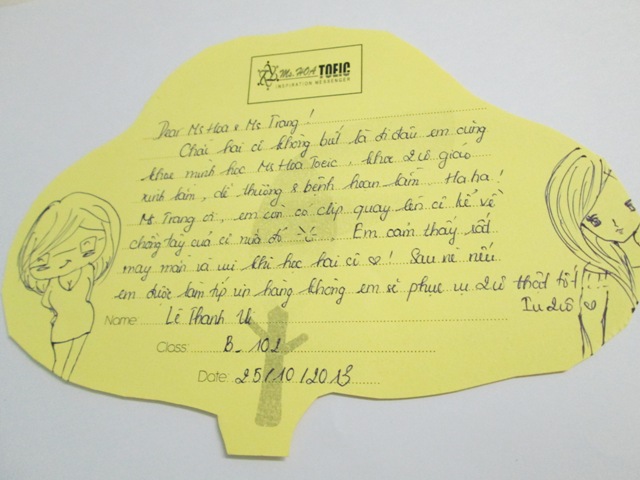 Ms. HOA TOEIC
INSPIRATION MESSENGER
Dear Ms Hoa & Ms Trang!
Chài hai cô không biết là đi đâu em cũng
khoe mình học Ms Hoa Toeic, khoe 2 cô giáo
xinh lắm, dễ thương & bệnh hoạn lắm. Haha!
Ms Trang ơi, em còn có clip quay lén cô kể về
chồng tây của cô nữa đó. Em cảm thấy rất
may mắn và vui khi học hai cô ♥! Sau nè nếu
em được làm tiếp viên hàng không em sẽ phục vụ 2 cô thật tốt!!!
Iu 2 cô ♥
Name: Lê Thanh Vi
Class: B_102
Date: 25/10/2013